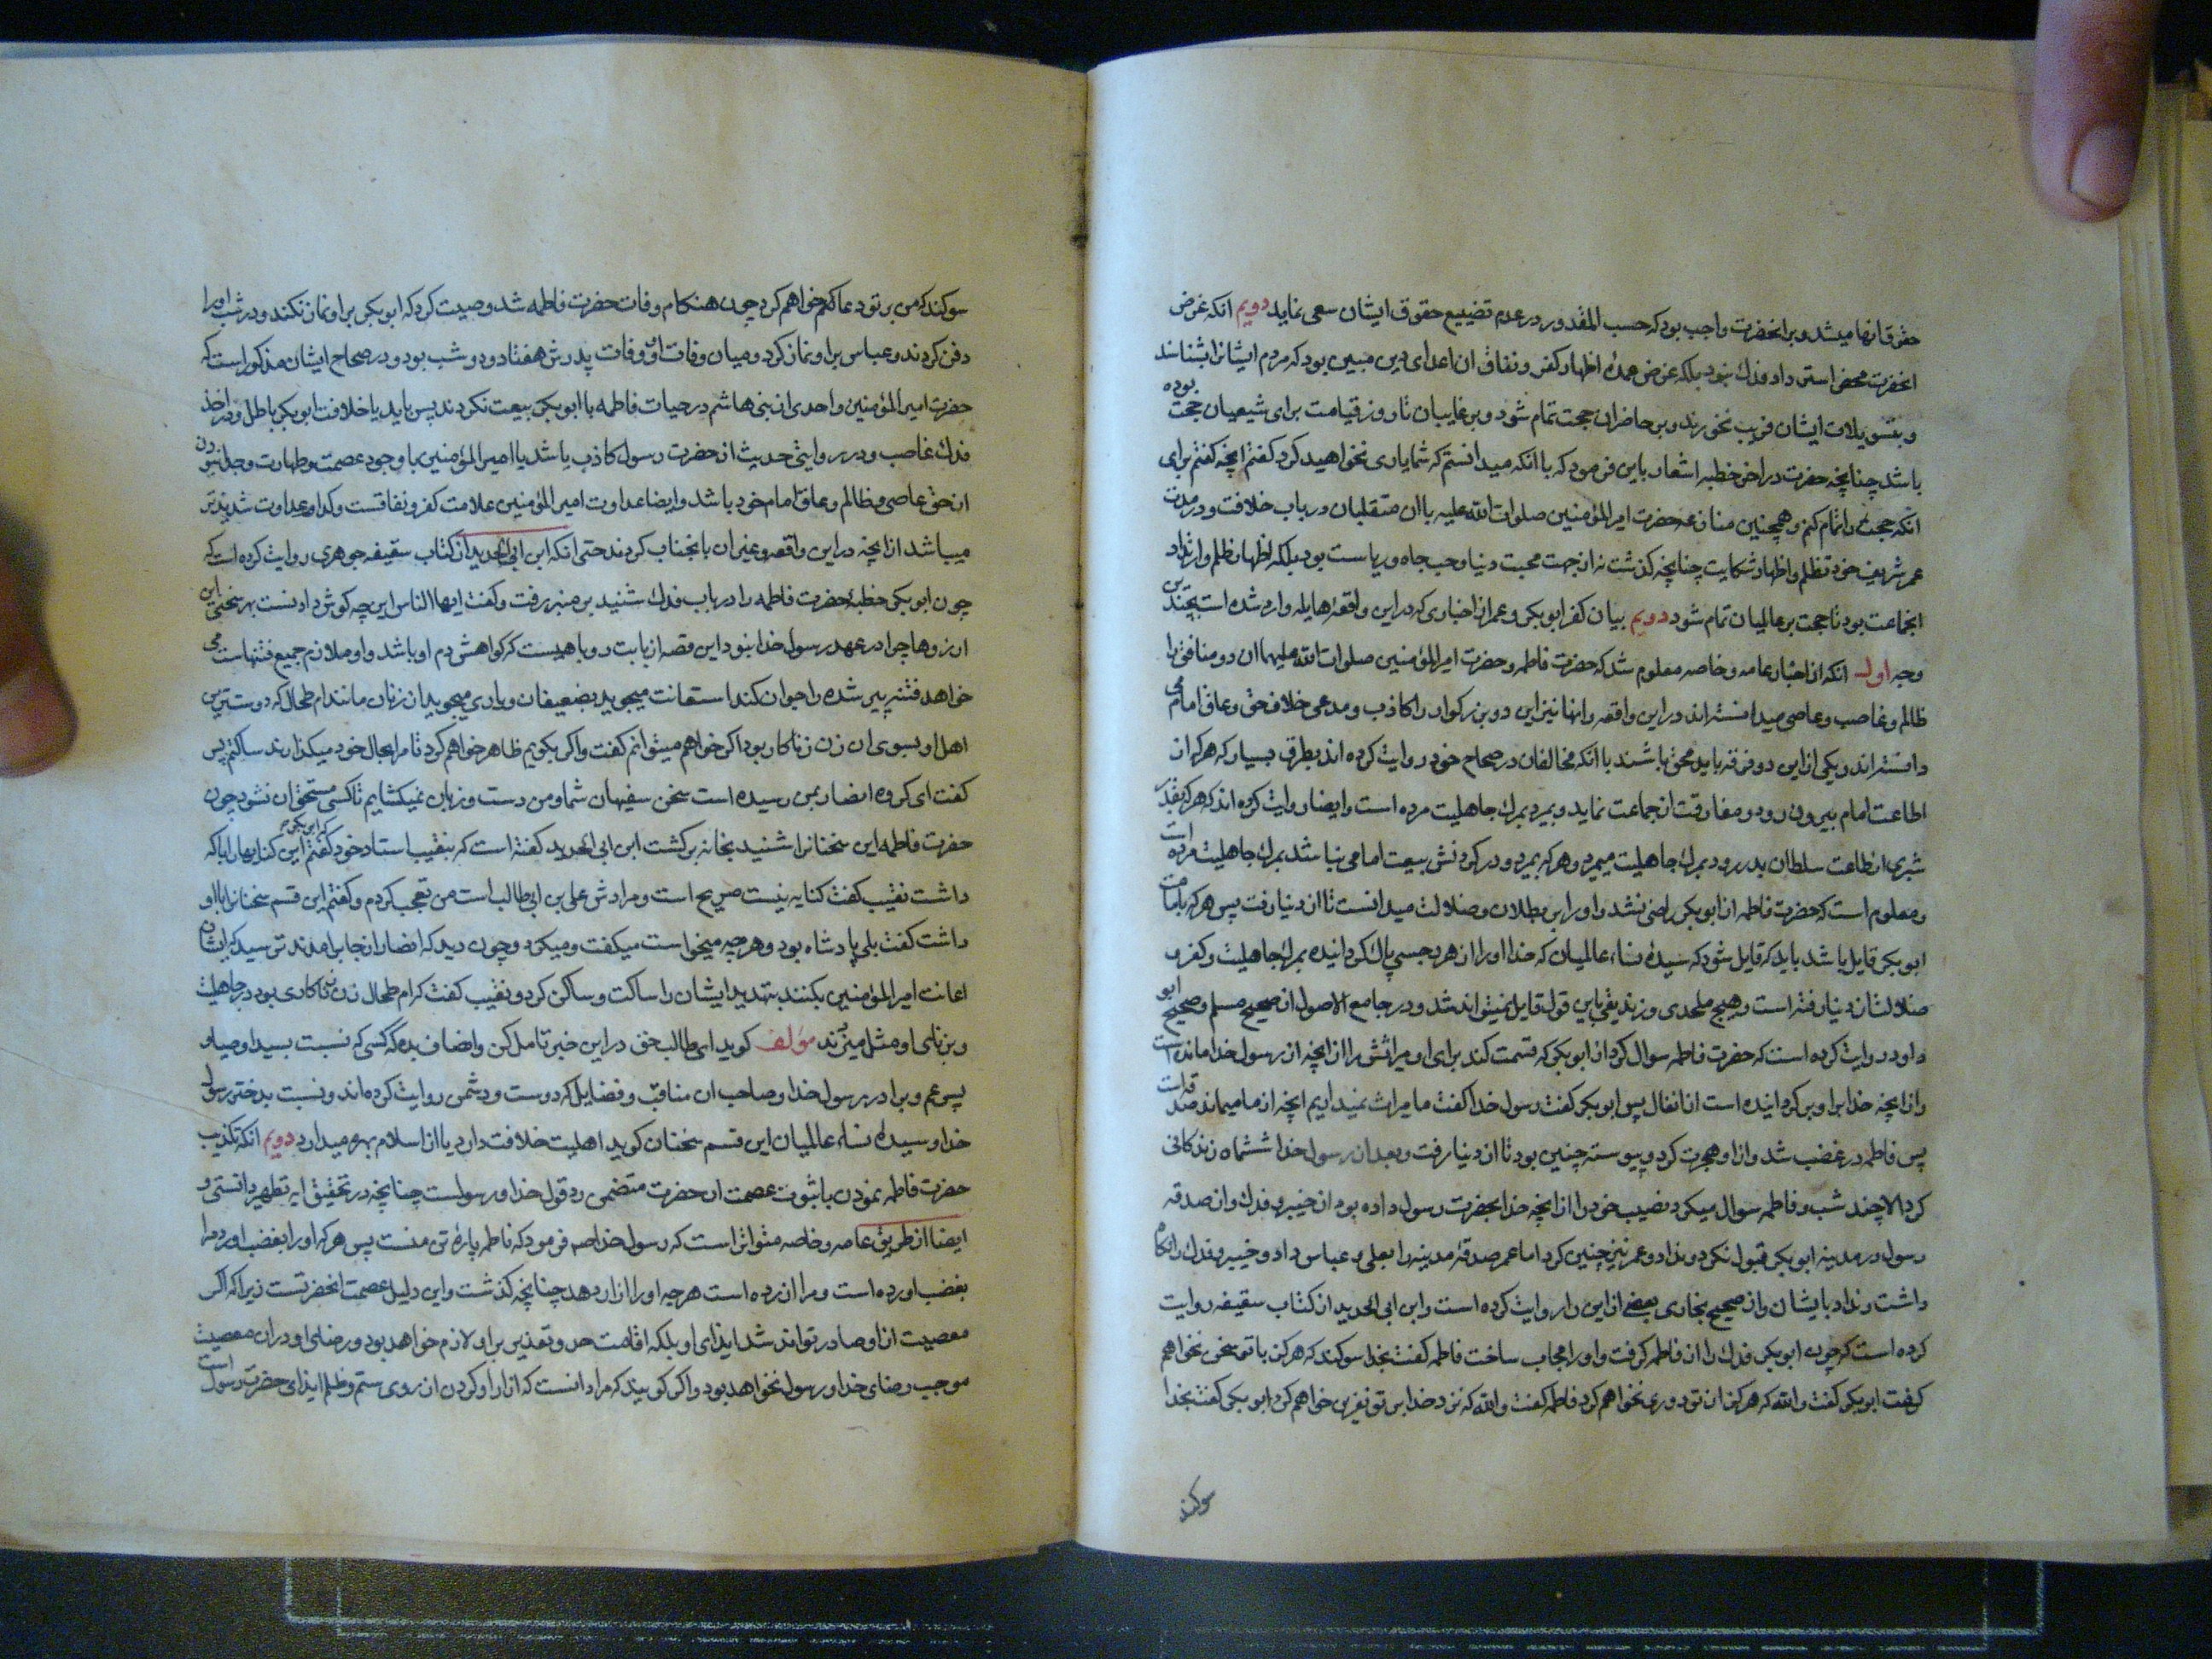 حقوق انها میشد و بر انحضرت واجب بود که حسب المقدور در عدم تضییع حقوق ایشان سعی نماید دویم انکه غرض
انحضرت محض استرداد فدك نبود بلکه غرض عمده اظهار کفر و نفاق ان اعدای دین مبین بود که مردم ایشانرا بشناسند
و بتسویلات ایشان فریب نخورند و بر حاضران حجت تمام شود و بر غایبان تا روز قیامت برای شیعیان حجت بوده
باشد چنانچه حضرت در اخر خطبه اشعار باین فرمود که با انکه میدانستم که شما یاری نخواهید کرد گفتم انچه گفتم برای
انکه حجت را تمام کنم و همچنین منازعه حضرت امیر المؤمنین صلوات الله علیه با ان متقلبان در باب خلافت و در مدت
عمر شریف خود تظلم و اظهار شکایت چنانچه گذشت نه از جهت محبت دنیا و حب جاه و ریاست بود بلکه اظهار ظلم و ارتداد
انجماعت بود تا حجت بر عالمیان تمام شود دویم بیان کفر ابو بکر و عمر از اخباری که در این واقعه هایله وارد شده است بچندین
وجه اول انکه از اخبار عامه و خاصه معلوم شد که حضرت فاطمه و حضرت امیر المؤمنین صلوات الله علیهما ان دو منافق را
ظالم و غاصب و عاصی میدانسته اند در این واقعه و انها نیز این دو بزرکوار را کاذب و مدعی خلاف حق و عاق امام می
دانسته اند و یکی از این دو فرقه باید محق باشند با انکه مخالفان در صحاح خود روایت کرده اند بطرق بسیار که هر که از
اطاعت امام بیرون رود و مفارقت از جماعت نماید و بمیرد بمرك جاهلیت مرده است و ایضا روایت کرده اند که هر که بقدر
شبری از طاعت سلطان بدر رود بمرك جاهلیت میمیرد و هر که بمیرد و در گردنش بیعت امامی نباشد بمرك جاهلیت مرده است
و معلوم است که حضرت فاطمه از ابو بکر راضی نشد و او را بر بطلان و ضلالت میدانست تا از دنیا رفت پس هر که بامامت
ابو بکر قایل باشد باید که قایل شود که سیده نساء عالمیان که خدا او را از هر رجسی پاك گردانیده بمرك جاهلیت و کفر و
ضلالت از دنیا رفته است و هیچ ملحدی و زندیقی باین قول قایل نمیتواند شد و در جامع الاصول از صحیح مسلم و صحیح ابو
داود روایت کرده است که حضرت فاطمه سوال کرد از ابو بکر که قسمت کند برای او میراثش را از انچه از رسول خدا مانده است
و از انچه خدا بر او بر گردانیده است از انفال پس ابو بکر گفت رسول خدا گفت ما میراث نمیداریم انچه از ما میماند صدقه است
پس فاطمه در غضب شد و از او هجرت کرد و پیوسته چنین بود تا از دنیا رفت و بعد از رسول خدا ششماه زندگانی
کرد الا چند شب و فاطمه سوال میکرد نصیب خود را از انچه خدا بحضرت رسول داده بود از خیبر و فدك و از صدقه
رسول در مدینه ابو بکر قبول نکرد و نداد و عمر نیز چنین کرد اما عمر صدقه مدینه را بعلی و عباس داد و خیبر و فدك را نگاه
داشت و نداد بایشان و از صحیح بخاری بعضی از این را روایت کرده است و ابن ابی الحدید از کتاب سقیفه روایت
کرده است که چون ابو بکر فدك را از فاطمه گرفت و او را مجاب ساخت فاطمه گفت بخدا سوکند که هرگز با تو سخن نخواهم
گفت ابو بکر گفت و الله که هرگز از تو دوری نخواهم کرد فاطمه گفت و الله که نزد خدا بر تو نفرین خواهم کرد ابو بکر گفت بخدا
سوکند
سوکند که من بر تو دعا خواهم کرد چون هنکام وفات حضرت فاطمه شد وصیت کرد که ابو بکر بر او نماز نکند و در شب او را
دفن کردند و عباس بر او نماز کرد و میان وفات او و وفات پدرش هفتاد و دو شب بود و در صحاح ایشان مذکور است که
حضرت امیر المؤمنین و احدی از بنی هاشم در حیات فاطمه با ابو بکر بیعت نکردند پس باید یا خلافت ابو بکر باطل و در اخذ
فدك غاصب و در روایت حدیث از حضرت رسول کاذب باشد یا امیر المؤمنین با وجود عصمت و طهارت و جدا نبودن
از حق عاصی و ظالم و عاق امام خود باشد و ایضا عداوت امیر المؤمنین علامت کفر و نفاقست و کدام عداوت شدیدتر
میباشد از انچه در این واقعه و غیر ان بانجناب کردند حتی انکه ابن ابی الحدید از کتاب سقیفه جوهری روایت کرده است که
چون ابو بکر خطبه حضرت فاطمه را در باب فدك شنید بر منبر رفت و گفت ایها الناس این چه گوش دادنست بهر سخنی این
ارزوها چرا در عهد رسول خدا نبود این قصه از بابت روباهیست که گواهش دم او باشد و او ملازم جمیع فتنهاست می
خواهد فتنه پیر شده را جوان کند استعانت میجوید بضعیفان و یاری میجوید از زنان مانند ام طحال که دوست‌ترین
اهل او بسوی او زن زناکار بود اگر خواهم میتوانم گفت و اگر بگویم ظاهر خواهم کرد تا مرا بحال خود میگذارند ساکتم پس
گفت ای گروه انصار بمن رسیده است سخن سفیهان شما و من دست و زبان نمیکشایم تا کسی مستحق ان نشود چون
حضرت فاطمه این سخنانرا شنید بخانه برگشت ابن ابی الحدید گفته است که بنقیب استاد خود گفتم که ابو بکر این کنایهارا با که
داشت نقیب گفت کنایه نیست صریح است و مرادش علی بن ابی طالب است من تعجب کردم و گفتم این قسم سخنانرا با او
داشت گفت بلی پادشاه بود و هر چه میخواست میگفت و میکرد و چون دید که انصار از جا برامدند ترسید که ایشان
اعانت امیر المؤمنین بکنند بتهدید ایشان را ساکت و ساکن کرد و نقیب گفت که ام طحال زن زناکاری بود در جاهلیت
و بزنای او مثل میزند مؤلف گوید ای طالب حق در این خبر تامل کن و انصاف بده که کسی که نسبت بسید اوصیا و
پسر عم و برادر رسول خدا و صاحب ان مناقب و فضایل که دوست و دشمن روایت کرده‌اند و نسبت بدختر رسول
خدا و سیده نساء عالمیان این قسم سخنان گوید اهلیت خلافت دارد یا از اسلام بهره میدارد دویم انکه تکذیب
حضرت فاطمه نمودن با ثبوت عصمت ان حضرت متضمن رد قول خدا و رسولست چنانچه در تحقیق ایه تطهیر دانستی و
ایضا از طریق عامه و خاصه متواتر است که رسول خدا ص فرمود که فاطمه پاره تن منست پس هر که او را بغضب اورد مرا
بغضب اورده است و مرا ازرده است هر چه او را ازار دهد چنانچه گذشت و این دلیل عصمت انحضرتست زیرا که اگر
معصیت از او صادر تواند شد ایذای او بلکه اقامت حد و تعذیر بر او لازم خواهد بود و رضای او در ان معصیت
موجب رضای خدا و رسول نخواهد بود و اگر گویند که مراد انست که ازار او کردن از روی ستم و ظلم ایذای حضرت رسول است